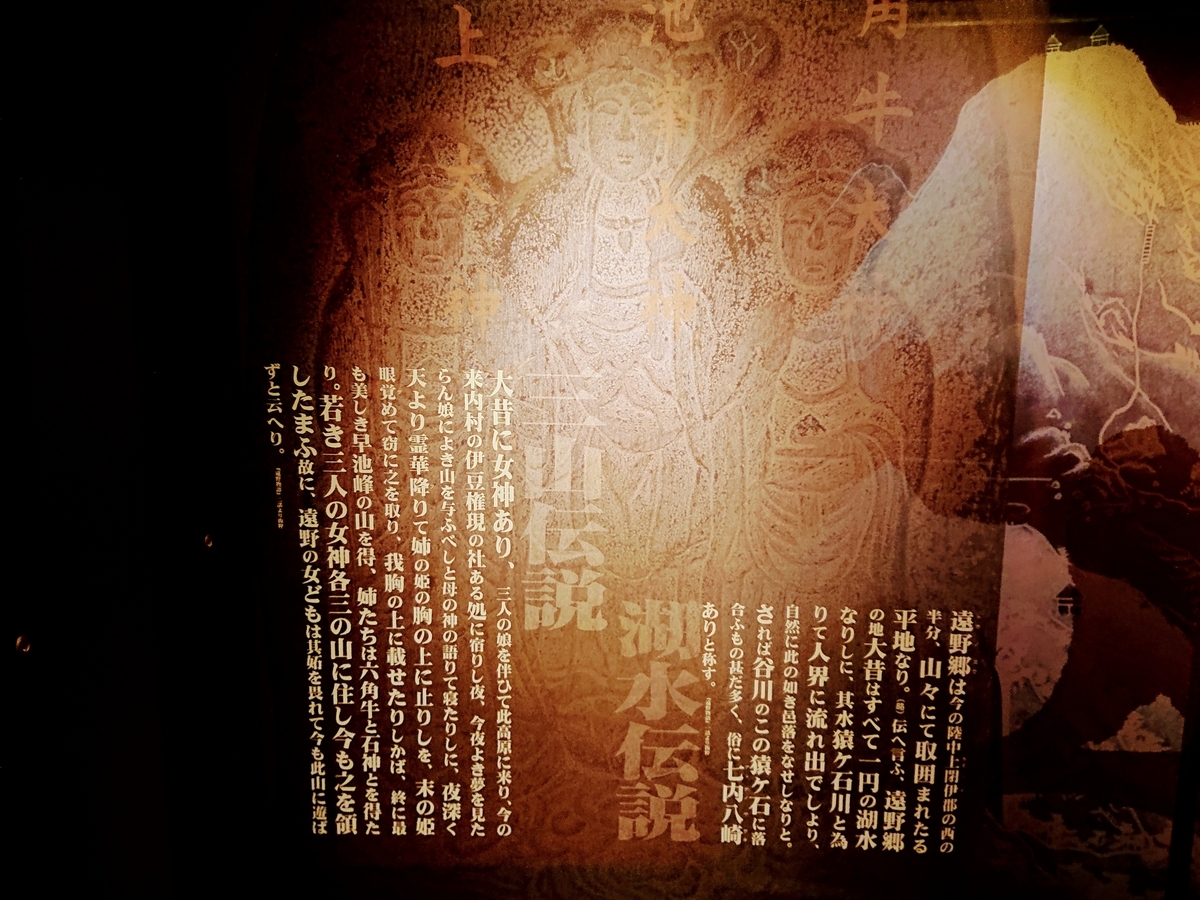 角牛大神
池峯大神
上大神
湖水伝説
遠野郷は今の陸中上閉伊郡の西の
半分、山々にて取囲まれたる
平地なり。(略)伝へ言ふ、遠野郷
の地大昔はすべて一円の湖水
なりしに、其水猿ケ石川と為
りて人界に流れ出でしより、
自然に此の如き邑落をなせしなりと。
されば谷川のこの猿ケ石に落
合ふもの甚だ多く、俗に七内八崎
ありと称す。
三山伝説
大昔に女神あり、三人の娘を伴ひて此高原に来り、今の
来内村の伊豆権現の社ある処に宿りし夜、今夜よき夢を見た
らん娘によき山を与ふべしと母の神の語りて寝たりしに、夜深く
天より霊華降りて姉の姫の胸の上に止りしを、末の姫
眼覚めて窃に之を取り、我胸の上に載せたりしかば、終に最
も美しき早池峰の山を得、姉たちは六角牛と石神とを得た
り。若き三人の女神各三の山に住し今も之を領
したまふ故に、遠野の女どもは其妬を畏れて今も此山に遊ば
ずと云へり。